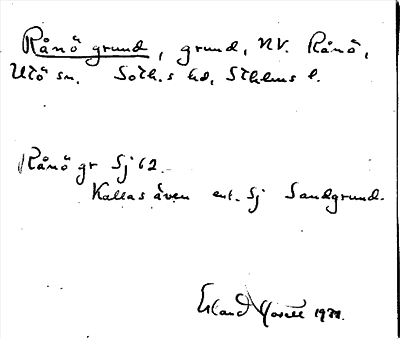 Rånö grund, grund, NV. Rånö,
Utö sn. Soth.s hd, Sthlms l.
Rånö gr Sj 62.
Kallas även enl. Sj Sandgrund.
Erland